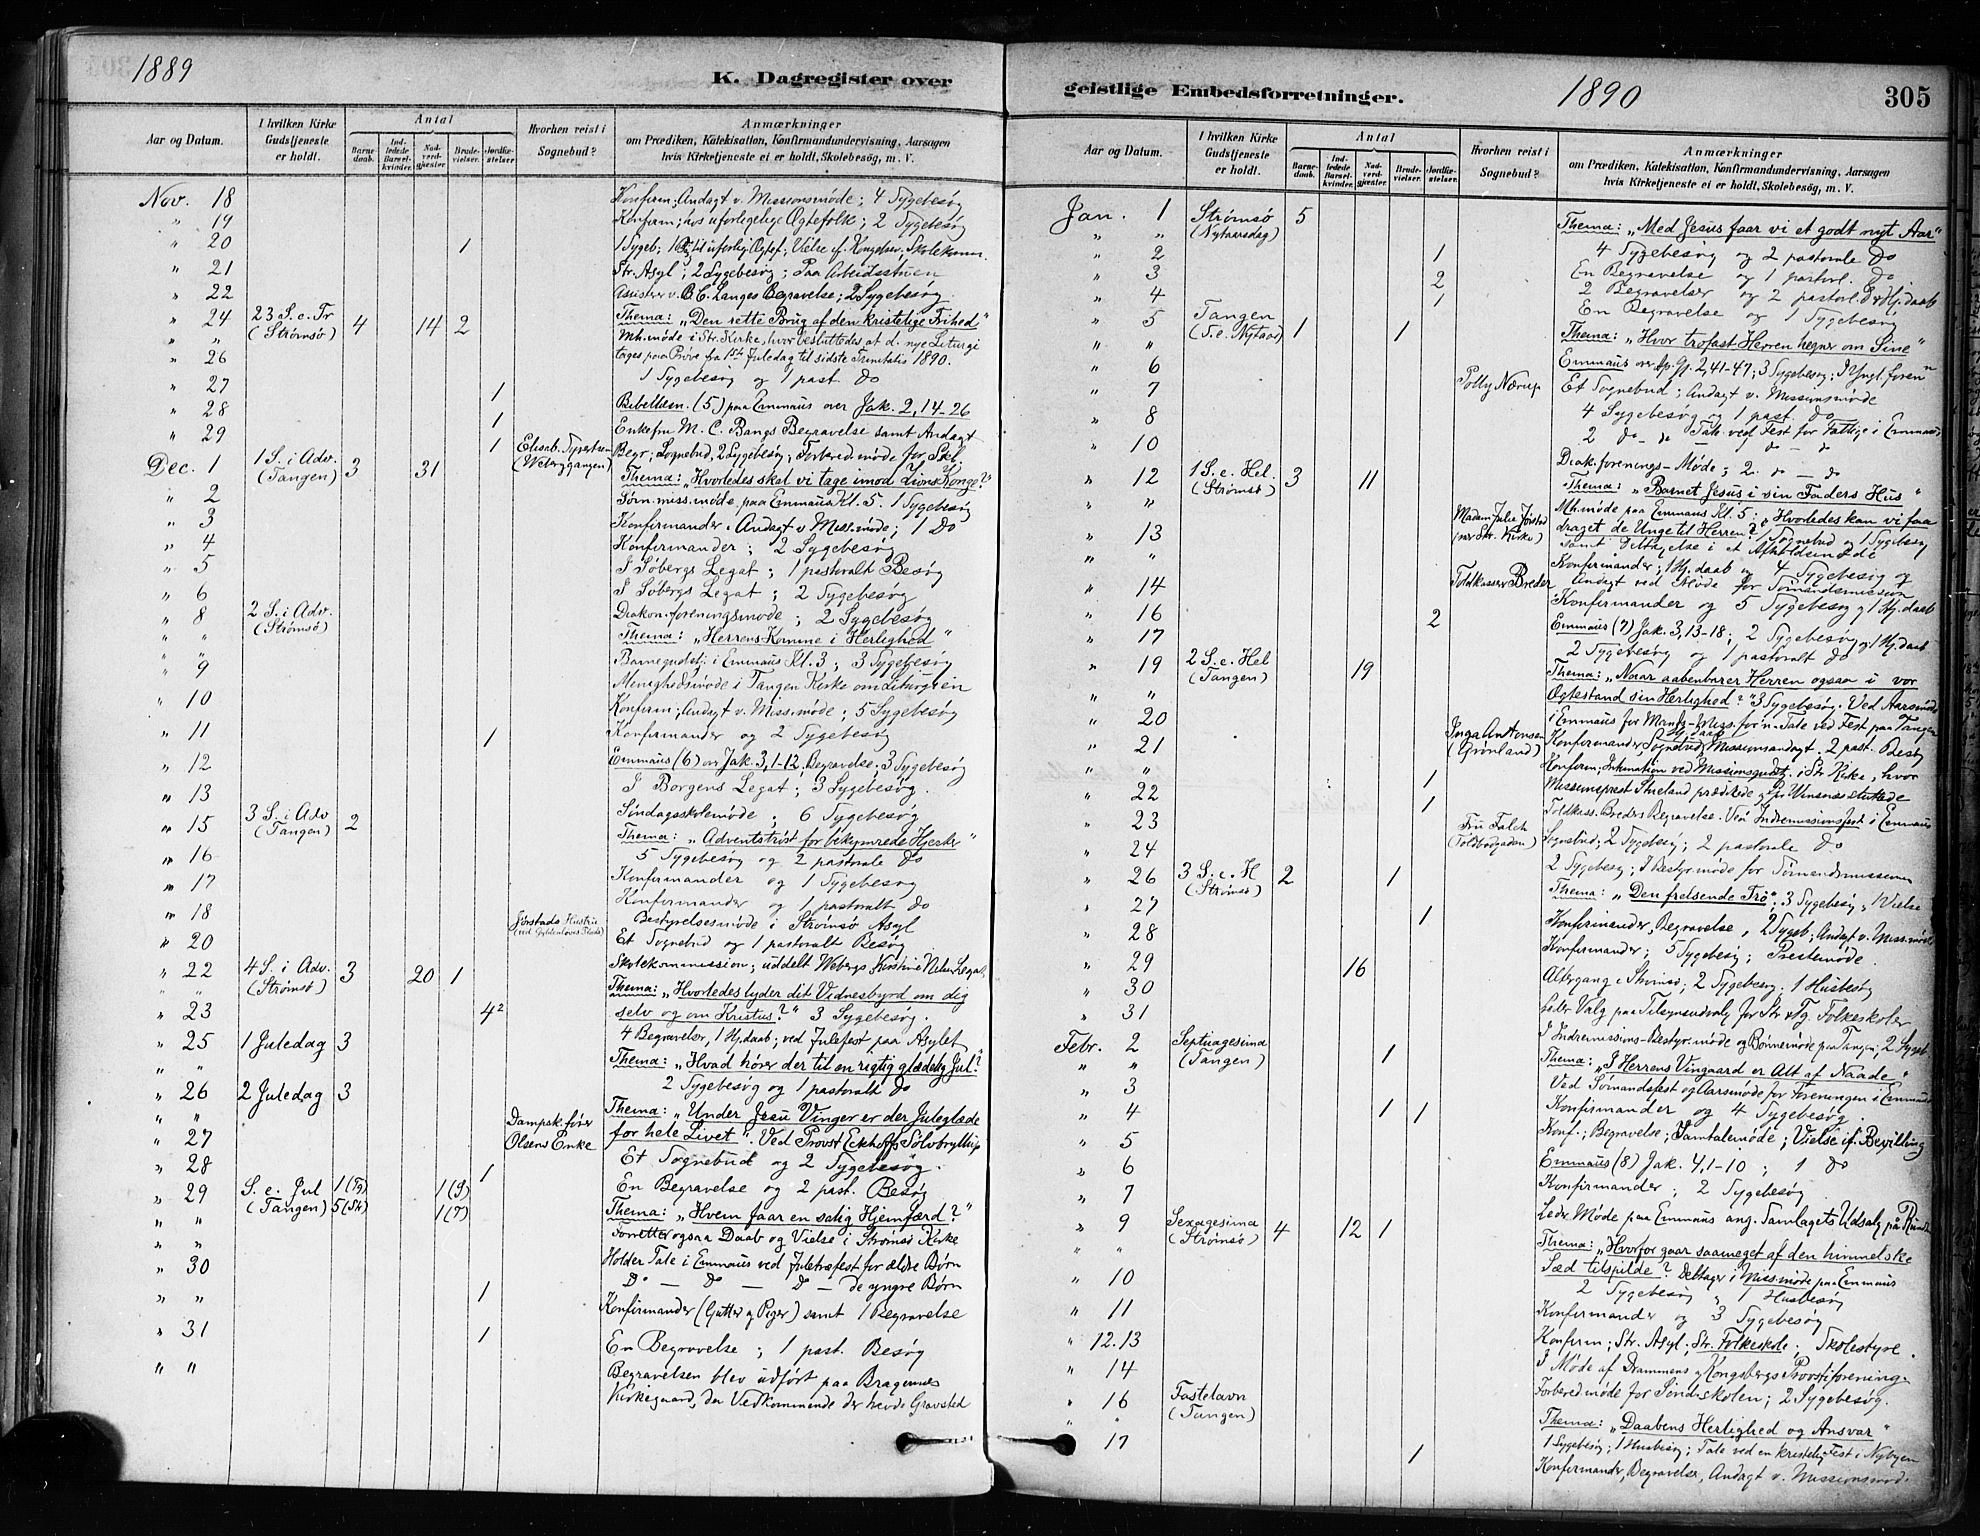 1889
K. Dagregister over
Aar og Datum.
I hvilken Kirke Gudstjeneste er holdt.
Antal
Barnedaab.
Indledede Barselkvinder.
Nadverdgjester
Brudevielser.
Jordfæstelser
Hvorhen reist i Sognebud?
Anmærkninger
om Prædiken, Katekisation, Konfirmandundervisning, Aarsagen
hvis Kirketjeneste ei er holdt, Skolebesøg, m. V.
Nov. 18 Konfirm; Andagt v. Missionsmøde; 4 Sygebesøg
" 19 Konfirm; hos uforligelige Ægtefolk; 2 Sygebesøg
" 20 1
" 21 Str. Asyl; 2 Sygebesøg; Paa Arbeidsstuen
" 22 Assisterer v. B. C. Langes Begravelse; 2 Sygebesøg
" 24 23 S. e. Tr (Strømsø) 4 14 2 Thema: "Den rette Brug af den kristelige Frihed"
" " Mh.møde i Str. Kirke, hvor besluttedes at d. nye Liturgi
tages paa Prøve fra 1ste Juledag til sidste Trinitatis 1890.
" 26 1 Sygebesøg og 1 past. Do
" 27 1 Bibellæsn. (5) paa Emmaus over Jak. 2, 14-26
" 28 1 Enkefru M. C. Bangs Begravelse samt Andagt
" 29 1 Begr; Sognebud, 2 Sygebesøg; Forbered.møde for
Dec. 1 1 S. i Adv. (Tangen) 3 31 Thema: "Hvorledes skal vi tage imod Zions Konge?"
" 2 Søm.miss.møde paa Emmaus Kl. 5. 1 Sygebesøg
" 3 Konfirmander. Andagt v. Miss.møde; 1 Do
" 4 Konfirmander; 2 Sygebesøg
" 5 I Søbergs Legat; 1 pastoralt Besøg
" 6 I Søbergs Legat; 2 Sygebesøg
" 8 2 S. i Adv. (Strømsø) Diakon.foreningsmøde; 2 Sygebesøg
" " Thema: "Herrens Komme i Herlighed"
" " Barnegudstj. i Emmaus Kl. 3; 3 Sygebesøg
" 9 Menighedsmøde i Tangen Kirke om Liturgien
" 10 Konfirm; Andagt v. Miss.møde; 5 Sygebesøg
" 11 1 Konfirmander og 2 Sygebesøg
" 12 Emmaus (6) over Jak. 3, 1-12, Begravelse. 3 Sygebesøg
" 13 I Borgens Legat; 3 Sygebesøg.
" 15 3 S. i Adv (Tangen) 2 Søndagsskolemøde; 6 Sygebesøg
Thema: "Adventstrøst for bekymrede Hjerter"
" 16 5 Sygebesøg og 2 pastorale Do
" 17 Konfirmander og 1 Sygebesøg
" 18 Konfirmander og 1 pastoralt Do
Jørstads Hustru
Bestyrelsesmøde i Strømsø Asyl
" 20 Et Sognebud og 1 pastoralt Besøg
" 22 4 S. i Adv. (Strømsø) 3 20 1 Skolekommission; uddelt Webergs Legat
" " Thema: "Hvorledes lyder dit Vidnesbyrd om dig
" 23 4 2 selv og om Kristus?" 3 Sygebesøg.
" 25 1 Juledag 3 4 Begravelser, 1 Hj.daab; ved Julefest paa Asylet
" " Thema: "Hvad hører der til en rigtig glædelig Jul?"
" 26 2 Juledag 3 2 Sygebesøg og 1 pastoralt Do
" " Thema: "Under Jesu Vinger er der Juleglæde
" 27 Dampsk.fører Olsens Enke for hele Livet". Ved Provst Eckhoffs Sølvbryllup
" 28 1 Et Sognebud og 2 Sygebesøg.
" 29 S. e. Jul (Tangen) 1 (Tg) 5 (Str) En Begravelse og 2 past. Besøg
" " Thema: "Hvem faar en salig Hjemfærd?"
" " Forretter ogsaa Daab og Vielse i Strømsø Kirke
" 30 Holder Tale i Emmaus ved Juletræfest for ældre Børn
" " 1 Do — Do — Do — de yngre Børn
Konfirmander (Gutter og Piger) samt 1 Begravelse
" 31 1 En Begravelse; 1 past. Besøg
" " Begravelsen blev udført paa Bragernes
Kirkegaard, da Vedkommende der havde Gravsted
geistlige Embedsforretninger.
1890
305
Aar og Datum.
I hvilken Kirke Gudstjeneste er holdt.
Antal
Barnedaab.
Indledede Barselkvinder.
Nadverdgjester
Brudevielser.
Jordfæstelser.
Hvorhen reist i Sognebud?
Anmærkninger
om Prædiken, Katekisation, Konfirmandundervisning, Aarsagen
hvis Kirketjeneste ei er holdt, Skolebesøg, m. V.
Jan. 1 Strømsø (Nytaarsdag) 5 Thema: "Med Jesus faar vi et godt nyt Aar"
" " 4 Sygebesøg og 2 pastorale Do
" 2 1 En Begravelse og 1 pastorl. Do
" 3 2 2 Begravelser og 2 pastorl. Do Hj.daab
" 4 1 En Begravelse og 1 Sygebesøg
" 5 Tangen (S. e. Nytaar) 1 1 Thema: "Hvor trofast Herren hegner om Sine"
" 6 Emmaus over Ap. Gj. 2, 41-47; 3 Sygebesøg; I Yngl.foren
" 7 Polly Nærup Et Sognebud; Andagt v. Missionsmøde
" 8 4 Sygebesøg og 1 past. Do
" 10 2 Do — Do Tale ved Fest for Fattige i Emmaus
Diak.forenings-Møde; 2 Do — Do
" 12 1 S. e. Hel. (Strømsø) 3 11 Thema: "Barnet Jesus i sin Faders Hus"
" " Mh.møde paa Emmaus Kl. 5: "Hvorledes kan vi faa
" 13 (nær Str. Kirke) draget de Unge til Herren?" Sognebud og 1 Sygebesøg
" " samt Deltagelse i et Afholdsmøde
" 14 Toldkasserer Breder Konfirmander; 1 Hj.daab og 4 Sygebesøg og
Andagt ved Møde for Sømandsmission
" 16 2 Konfirmander og 5 Sygebesøg og 1 Hj.daab
" 17 Emmaus (7) Jak. 3, 13-18; 2 Sygebesøg og 1 Hj.daab
" 19 2 S. e. Hel (Tangen) 19 2 Sygebesøg og 1 pastoralt Do
" " Thema: "Naar aabenbarer Herren ogsaa i vor
" 20 Ægtestand sin Herlighed?" 3 Sygebesøg. Ved Aarsmøde
i Emmaus for Miss.for'n. Tale ved Fest paa Tangen
" 21 Inga Antonsen (Grønland) Konfirmander, Sognebud, Missionsandagt. 2 past. Besøg
" " 1 Konfirm; Intimation ved Missionsgudst. i Str Kirke, hvor
" 22 1 Missionsprest prædikede
" 23 Fru Falch (Toldbodgaden) Toldkass. Breders Begravelse. Ved Indremissionsfest i Emmaus
" 24 Sognebud; 2 Sygebesøg; 2 pastorale Do
" 26 3 S. e. H (Strømsø) 2 1 2 Sygebesøg; I Bestyr.møde for Sømandsmissionen
" 27 1 Thema: "Den frelsende Tro"; 3 Sygebesøg, 1 Vielse
" 28 Konfirmander, Begravelse, 2 Sygeb; Andagt v. Miss.møde
" 29 16 Konfirmander; 5 Sygebesøg; Prestemøde.
" 30 Altergang i Strømsø; 2 Sygebesøg; 1 Husbesøg
" 31 Leder Valg paa Tilsynsudvalg for Str & Tg. Folkeskoler
Febr. 2 Septuagesima (Tangen) 1 I Indremissions-Bestyr.møde og Bønnemøde paa Tangen; 2 Sygeb.
" " Thema: "I Herrens Vingaard er Alt af Naade"
" 3 Ved Sømandsfest og Aarsmøde for Foreningen i Emmaus
" 4 1 1 Konfirmander og 4 Sygebesøg.
" 5 Konf.; Begravelse; Samtalemøde; Vielse if. Bevilling
" 6 Emmaus (8) Jak. 4, 1-10; 1 Do
" 7 Konfirmander; 2 Sygebesøg
" 9 Sexagesima (Strømsø) 4 12 1 Leder Møde paa Emmaus ang. Samlagets Udsalg på
" " Thema: "Hvorfor gaar saameget af den himmelske
" 10 Sæd tilspilde?" Deltager i Miss.møde paa Emmaus
2 Sygebesøg, 1 Husbesøg
" 11 Konfirmander og 3 Sygebesøg
" 12.13 Konfirm; Str. Asyl; Str. Folkeskole; Skolestyre.
" 14 I Møde af Drammens & Kongsbergs Provstiforening.
" 16 Fastelavn (Tangen) Forbered.møde for Søndskolen; 2 Sygebesøg.
" " Thema: "Daabens Herlighed og Ansvar"
" 17 1 1 Sygebesøg; 1 Husbesøg; Tale ved en kristelig Fest i Nybyen
Konfirmander, Begravelse, Andagt v. Missionsmøde